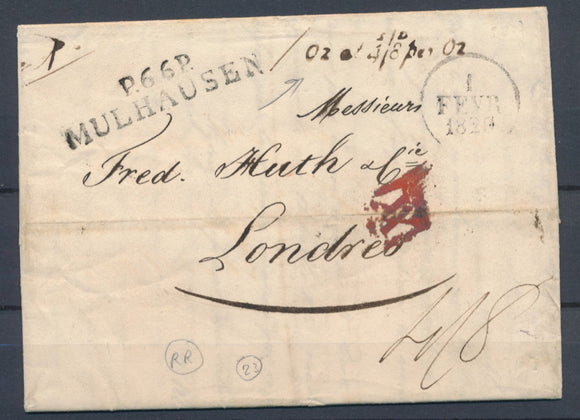 P.66.P.
MULHAUSEN
Oz at 4/8 per Oz
1
FEVR
Messieurs
Fred. Huth & Cie
Londres
4/8
RR
23